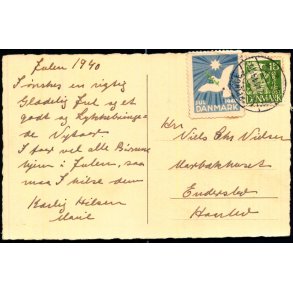 Julen 1940
I ønskes en rigtig
Glædelig Jul og et
godt og Lykkebringen
de Nytaar
I faar vel alle Børnene
hjem i Julen, saa
maa I hilse dem
Kærlig Hilsen
JUL 1940
DANMARK
15
DANMARK
Hr
Niels Chr Nielsen
Enderslev
Haarlev